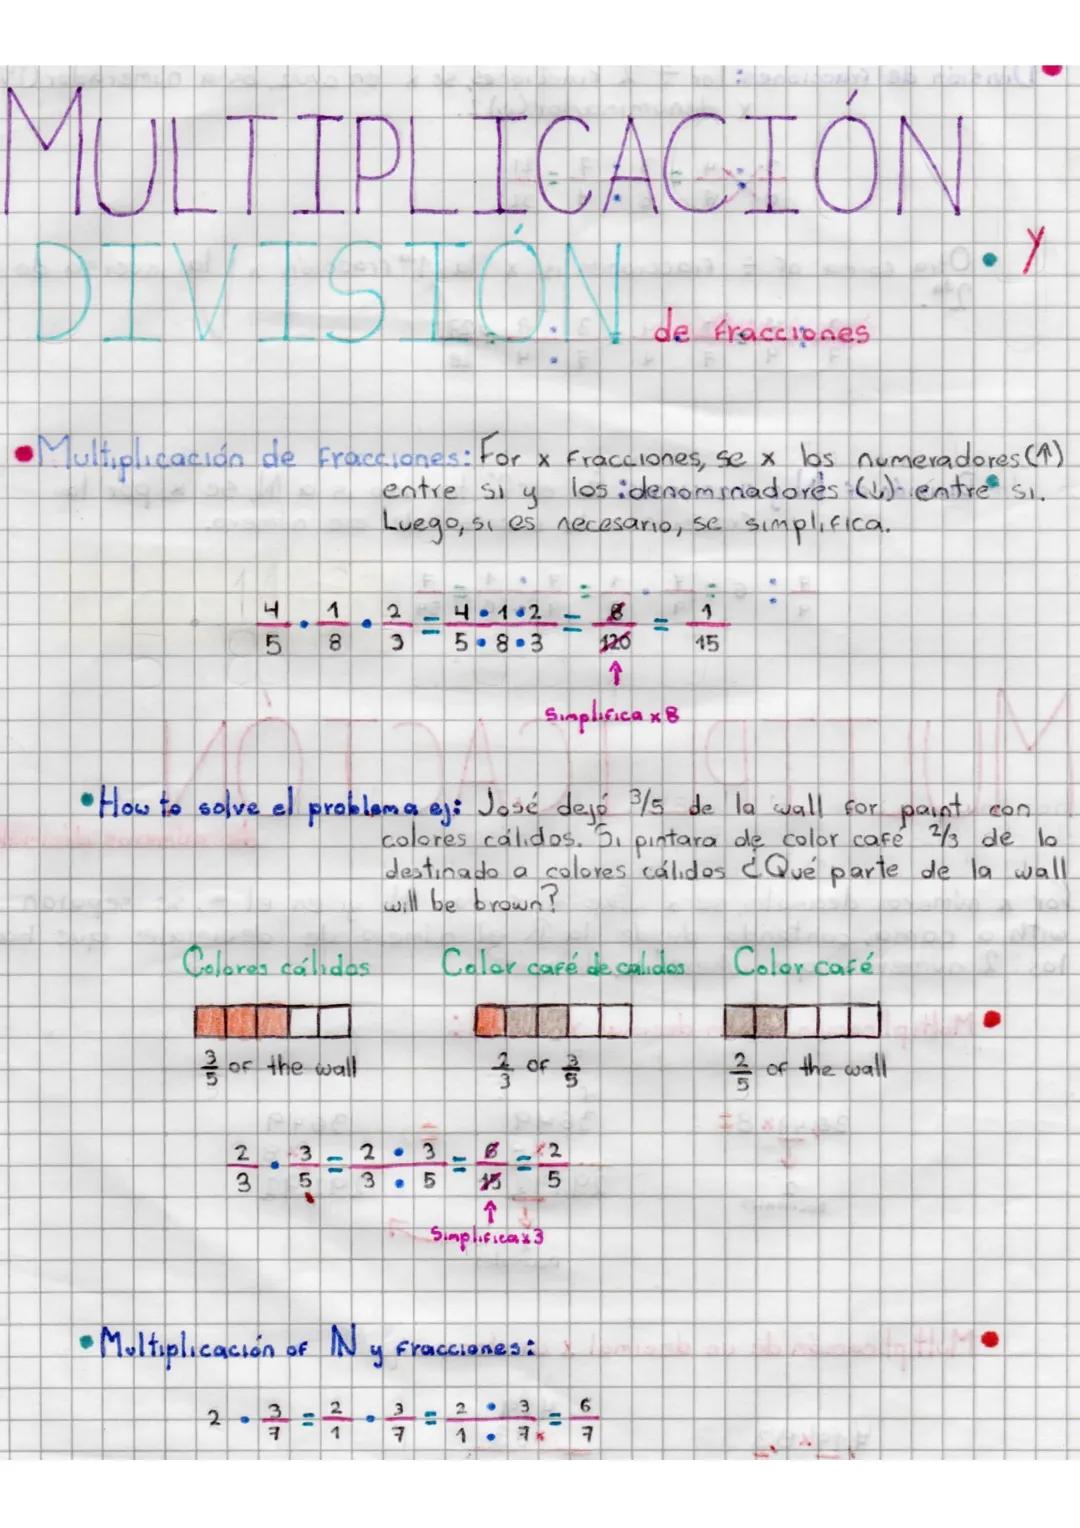 MULTIPLICACIÓN
y
DIVISIÓN
de fracciones
•Multiplicación de fracciones: For x fracciones, se x los numeradores (↑)
entre si y los denominadores (↓) entre si.
Luego, si es necesario, se simplifica.
4/5 · 1/8 · 2/3 = 4·1·2/5·8·3 = 8/120 = 1/15
↑
Simplifica x 8
•How to solve el problema ej: José dejó 3/5 de la wall for paint con
colores cálidos. Si pintara de color café 2/3 de lo
destinado a colores cálidos ¿Qué parte de la wall
will be brown?
Colores cálidos Color café de calidos Color café
3/5 of the wall 2/3 of 3/5 2/5 of the wall
2/3 · 3/5 = 2·3/3·5 = 6/15 = 2/5
↑
Simplifica x 3
•Multiplicación of ℕ y fracciones:
2 · 3/7 = 2/1 · 3/7 = 2·3/1·7 = 6/7